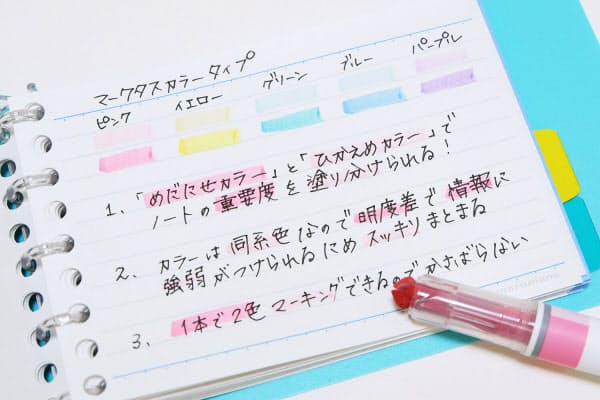 マークタスカラータイプ
ピンク イエロー グリーン ブルー パープル
1、「めだたせカラー」と「ひかえめカラー」で
ノートの重要度を塗り分けられる!
2、カラーは同系色なので明度差で情報に
強弱がつけられるためスッキリまとまる
3、1本で2色マーキングできるのでかさばらない